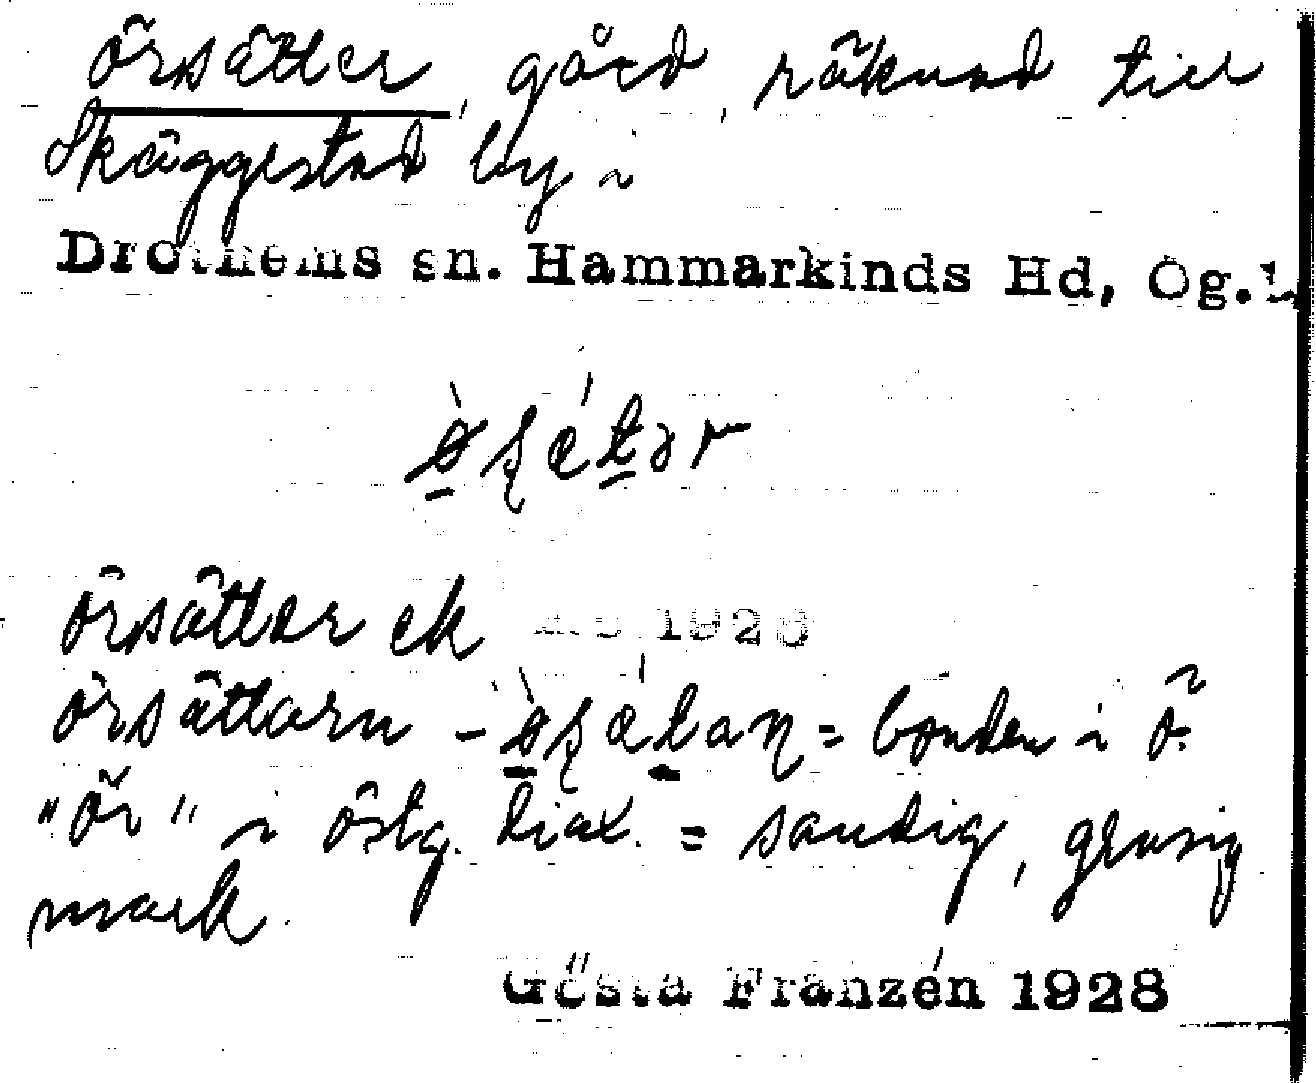 Örsätter, gård, räknad till
Skäggestad by i
Drothems sn. Hammarkinds Hd, Ög.L
Örsätter ek 1928
Örsättarn - = bonden i Ö.
"Ör" i östg. dial. = sandig, grusig
mark.
Gösta Franzén 1928